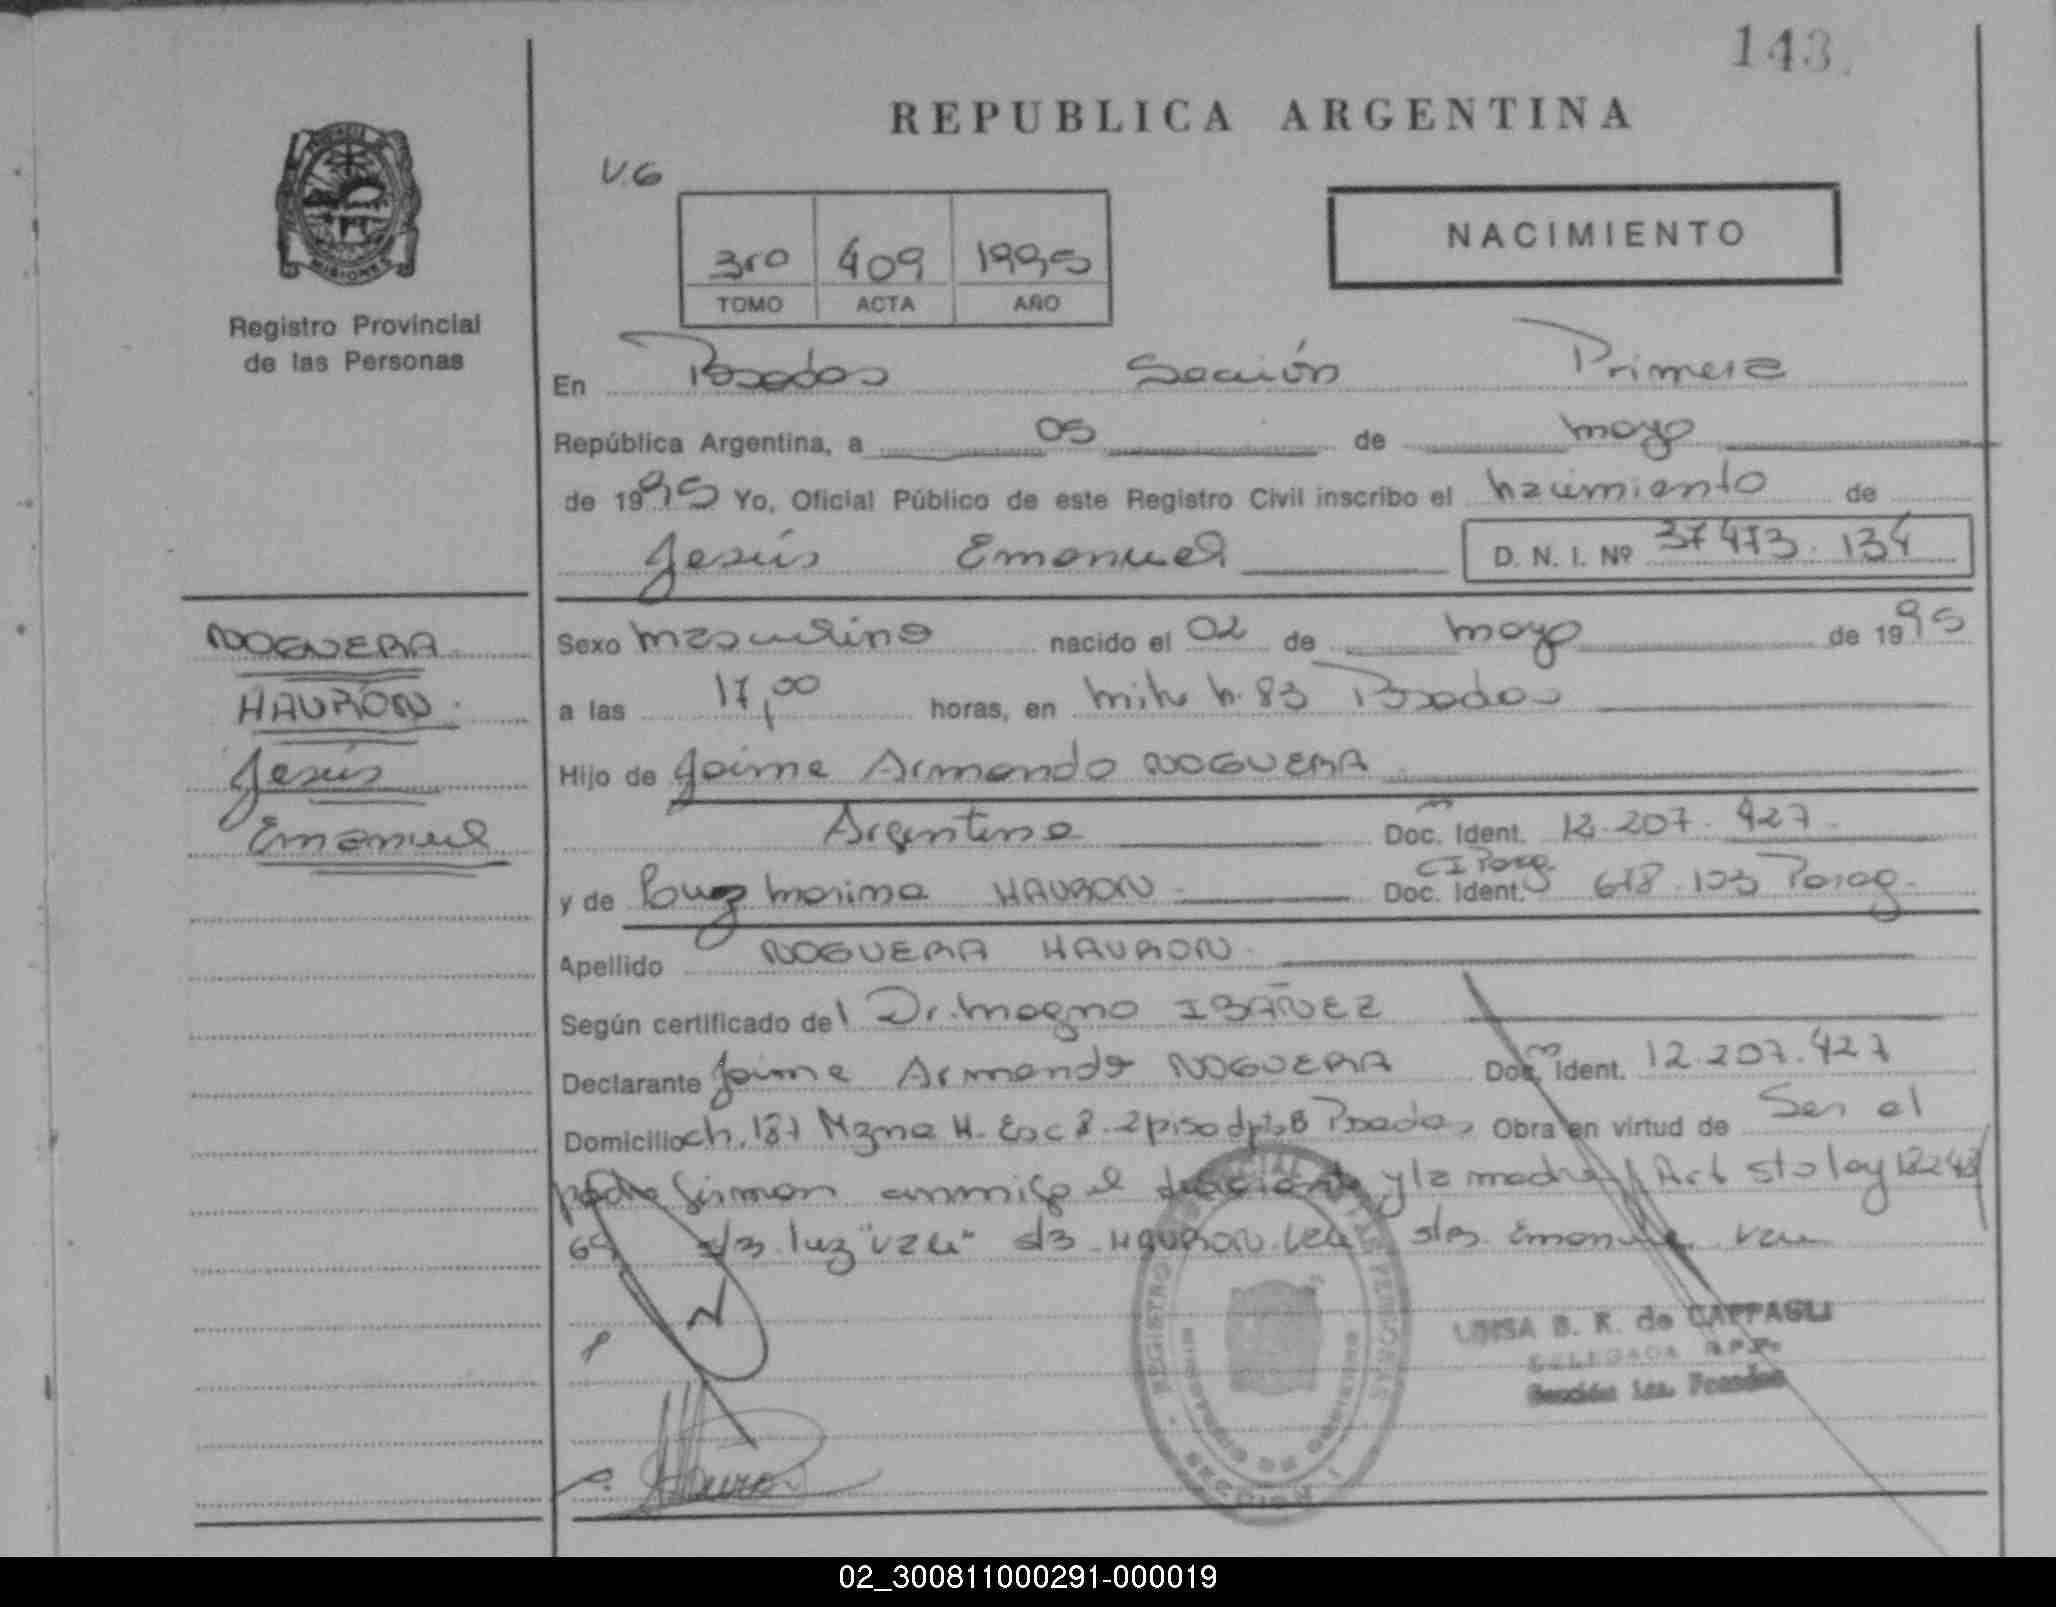 143.
REPUBLICA ARGENTINA
V.G
NACIMIENTO
3ro 409 1995
TOMO ACTA AÑO
MISIONES
Registro Provincial
de las Personas
En Posadas Sección Primera
República Argentina, a 05 de mayo
de 1995 Yo, Oficial Público de este Registro Civil inscribo el nacimiento de
Jesús Emanuel D. N. I. Nº 37473.134
NOGUERA
HAURÓN
Jesús
Emanuel
Sexo masculino nacido el 02 de mayo de 1995
a las 17,00 horas, en mitre n. 83 Posadas
Hijo de Jaime Armando NOGUERA
Argentino Doc. Ident. 12.207.427
CI Parag.
y de Luz marina HAURON Doc. Ident. 103 Parag.
Apellido NOGUERA HAURON
Según certificado del Dr. magno IBAÑEZ
Declarante Jaime Armando NOGUERA Doc. Ident. 12.207.427
Domicilio ch. 181 Mzna H. Esc 8. 2 piso dpto B Posadas Obra en virtud de Ser el
padre firman conmigo el declarante y la madre Art sto ley
69 s/r luz "vale" s/r HAURON vale s/r Emanuel vale
REGISTRO PROVINCIAL DE LAS PERSONAS
MINISTERIO DE GOBIERNO
SECCION 1
B. R. de CAPPAGLI
DELEGADA R.P.P.
Sección 1ra. Posadas
02_300811000291-000019